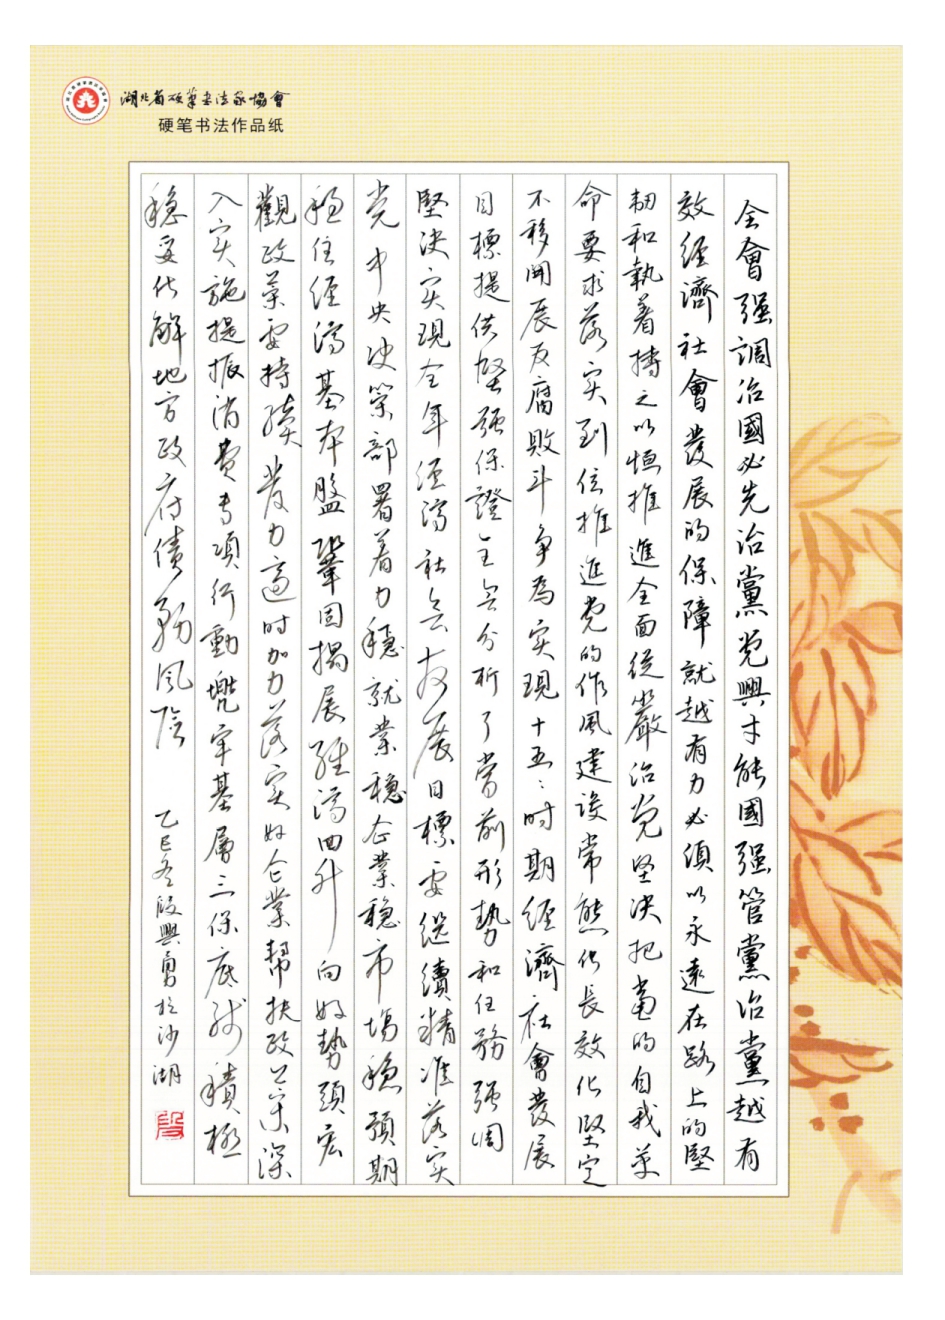 湖北省硬筆书法家協會
硬笔书法作品纸
全會强調治國必先治黨党興才能國强管黨治黨越有
效經濟社會發展的保障就越有力必須以永遠在路上的堅
韧和執着持之以恒推進全面從嚴治党坚决把党的自我革
命要求落实到位推进党的作風建设常態化長效化堅定
不移開展反腐敗斗争為实現十五五时期經濟社會發展
目標提供堅强保證全会分析了當前形勢和任務强调
堅决实現全年经濟社会发展目標要继續精准落实
党中央决策部署着力穩就業穩企業穩市场穩預期
穩住经濟基本盤鞏固拓展经濟回升向好勢頭宏
觀政策要持續發力適时加力落实好企業幫扶政策深
入实施提振消费专項行動兜牢基層三保底线積極
穩妥化解地方政府债务風险
乙巳冬殷興勇於沙湖
殷